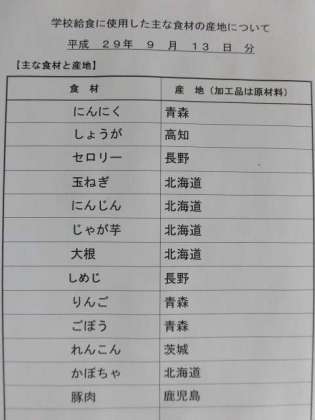 学校給食に使用した主な食材の産地について
平成 29年 9 月 13 日 分
【主な食材と産地】
食 材 産 地（加工品は原材料）
にんにく 青森
しょうが 高知
セロリー 長野
玉ねぎ 北海道
にんじん 北海道
じゃが芋 北海道
大根 北海道
しめじ 長野
りんご 青森
ごぼう 青森
れんこん 茨城
かぼちゃ 北海道
豚肉 鹿児島